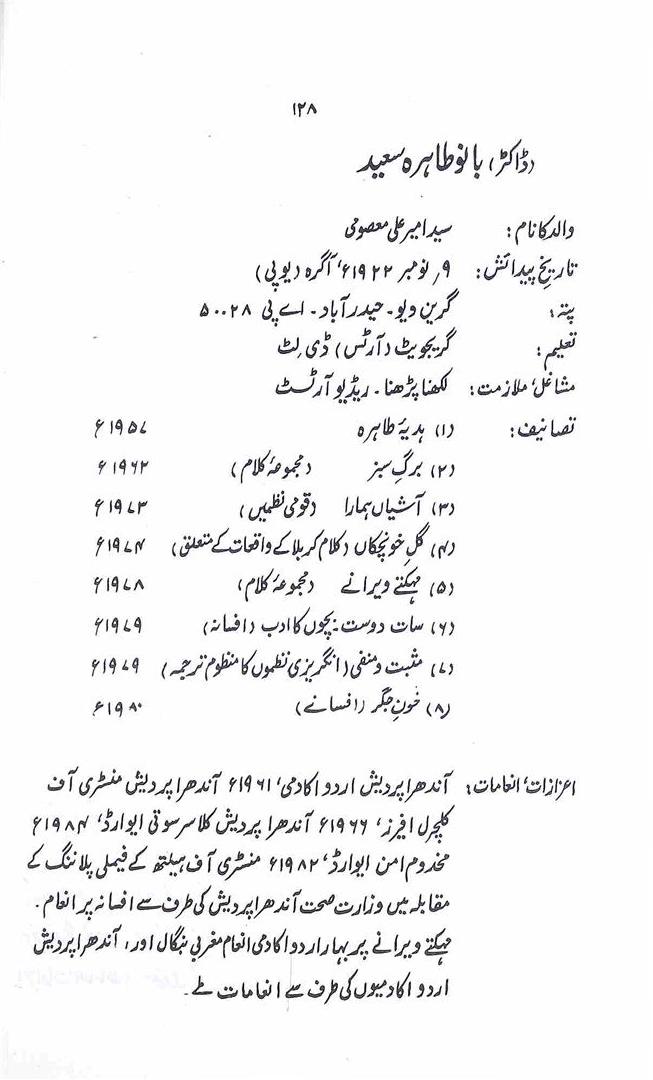 ۱۲۸
(ڈاکٹر) بانو طاہرہ سعید
والد کا نام: سید امیر علی معصومی
تاریخِ پیدائش: ۹؍ نومبر ۱۹۲۲ء، آگرہ (یوپی)
پتہ: گرین ویو۔ حیدرآباد۔ اے پی ۵۰۰۲۸
تعلیم: گریجویٹ (آرٹس) ڈی لٹ
مشاغل، ملازمت: لکھنا پڑھنا۔ ریڈیو آرٹسٹ
تصانیف: (۱) ہدیۂ طاہرہ ۱۹۵۷ء
(۲) برگِ سبز (مجموعۂ کلام) ۱۹۶۲ء
(۳) آشیاں ہمارا (قومی نظمیں) ۱۹۷۳ء
(۴) گلِ خونچکاں (کلام کربلا کے واقعات کے متعلق) ۱۹۷۴ء
(۵) مہکتے ویرانے (مجموعۂ کلام) ۱۹۷۸ء
(۶) سات دوست: بچوں کا ادب (افسانہ) ۱۹۷۹ء
(۷) مثبت و منفی (انگریزی نظموں کا منظوم ترجمہ) ۱۹۷۹ء
(۸) خونِ جگر (افسانے) ۱۹۸۰ء
اعزازات، انعامات: آندھرا پردیش اردو اکادمی، ۱۹۶۱ء آندھرا پردیش منسٹری آف
کلچرل افیرز، ۱۹۶۶ء آندھرا پردیش کلا سرسوتی ایوارڈ، ۱۹۸۴ء
مخدوم امن ایوارڈ، ۱۹۸۲ء منسٹری آف ہیلتھ کے فیملی پلاننگ کے
مقابلہ میں وزارت صحت آندھرا پردیش کی طرف سے افسانہ پر انعام۔
مہکتے ویرانے پر بہار اردو اکادمی انعام مغربی بنگال اور، آندھرا پردیش
اردو اکادمیوں کی طرف سے انعامات ملے۔